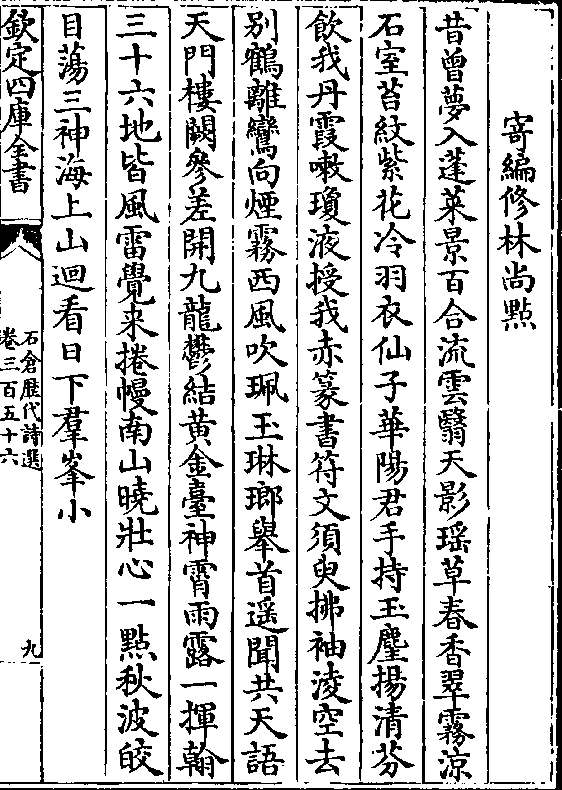 寄編修林尚默
昔曾夢入蓬萊景百合流雲翳天影瑶草春香翠霧凉
石室苔紋紫花冷羽衣仙子華陽君手持玉麈揚清芬
飲我丹霞嗽瓊液授我赤篆書符文須臾拂袖淩空去
别鶴離鸞向煙霧西風吹珮玉琳瑯舉首遥聞共天語
天門樓闕參差開九龍鬱結黄金臺神霄雨露一揮翰
三十六地皆風雷覺来捲幔南山曉壯心一點秋波皎
目蕩三神海上山迴看日下羣峯小
欽定四庫全書
石倉歷代詩選
卷三百五十六
九